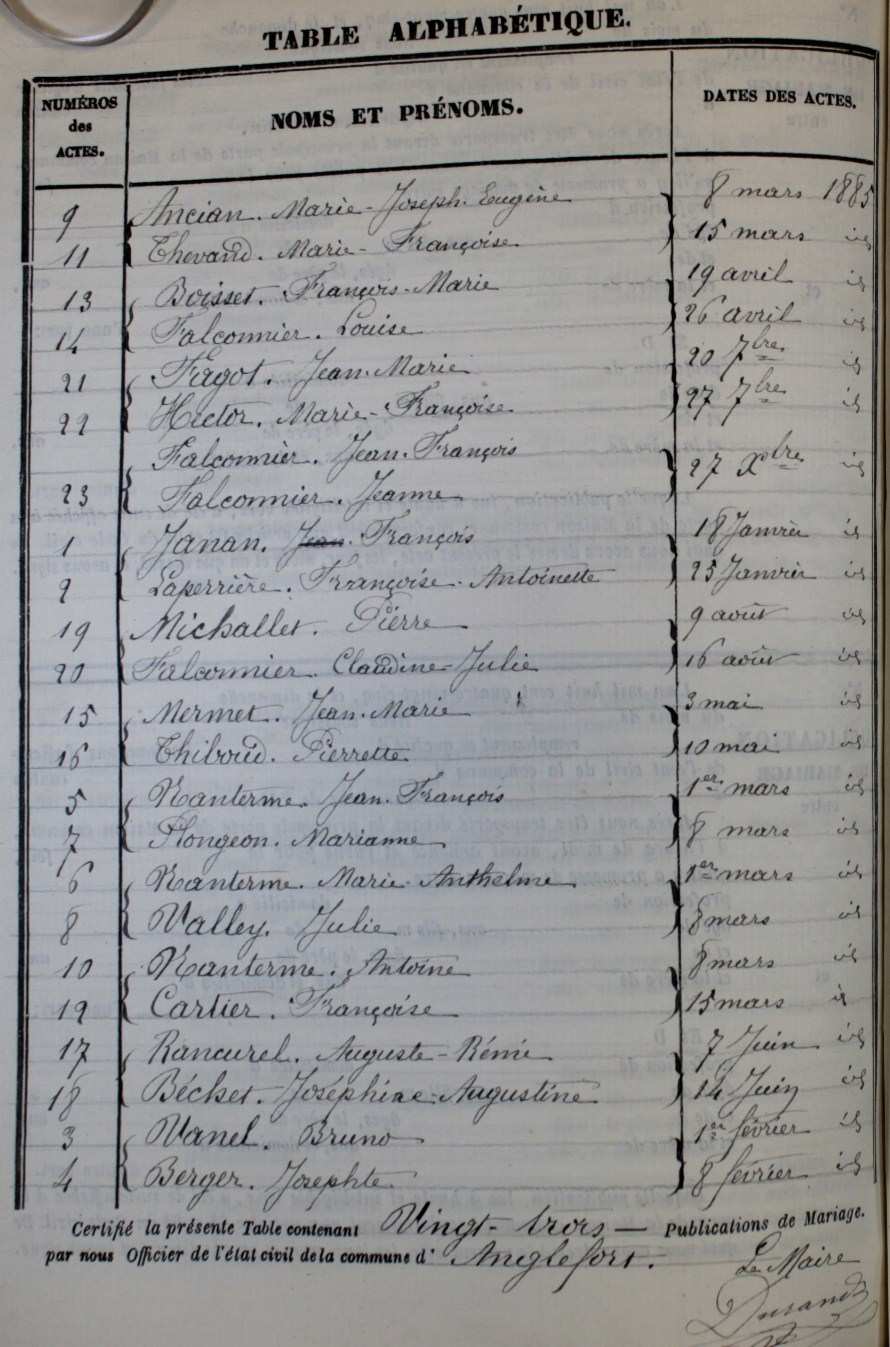 TABLE ALPHABÉTIQUE.
NUMÉROS des ACTES. NOMS ET PRÉNOMS. DATES DES ACTES.
9 Ancian. Marie-Joseph. Eugène 8 mars 1885
11 Thevand. Marie-Françoise 15 mars id
13 Boisset. François-Marie 19 avril id
14 Falconnier. Louise 26 avril id
21 Fagot. Jean-Marie 20 7bre id
22 Hector. Marie-Françoise 27 7bre id
Falconnier. Jean. François
23 Falconnier. Jeanne 27 Xbre id
1 Janan. Jean. François 18 Janvier id
2 Laperrière. Françoise-Antoinette 25 Janvier id
19 Michallet. Pierre 9 août id
20 Falconnier. Claudine-Julie 16 août id
15 Mermet. Jean-Marie 3 mai id
16 Thiboud. Pierrette 10 mai id
5 Nanterme. Jean. François 1er mars id
7 Plongeon. Marianne 8 mars id
6 Nanterme. Marie-Anthelme 1er mars id
8 Valley. Julie 8 mars id
10 Nanterme. Antoine 8 mars id
12 Cartier. Françoise 15 mars id
17 Rancurel. Auguste-Rémi 7 Juin id
18 Béchet. Joséphine-Augustine 14 Juin id
3 Vanel. Bruno 1er février id
4 Berger. Josephte 8 février id
Certifié la présente Table contenant Vingt-trois — Publications de Mariage.
par nous Officier de l'état civil de la commune d' Anglefort. Le Maire
Durand